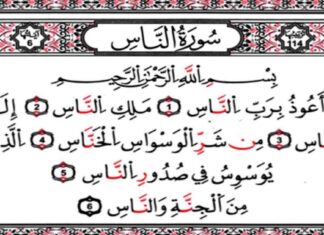 ترتيبها 114 سُورَةُ النَّاسِ آياتها 6
بِسْمِ اللَّهِ الرَّحْمَٰنِ الرَّحِيمِ
أَعُوذُ بِرَبِّ النَّاسِ (1) مَلِكِ النَّاسِ (2) إِلَٰ
نَّاسِ (3) مِن شَرِّ الْوَسْوَاسِ الْخَنَّاسِ (4) الَّذِ
يُوَسْوِسُ فِي صُدُورِ النَّاسِ (5)
مِنَ الْجِنَّةِ وَالنَّاسِ (6)